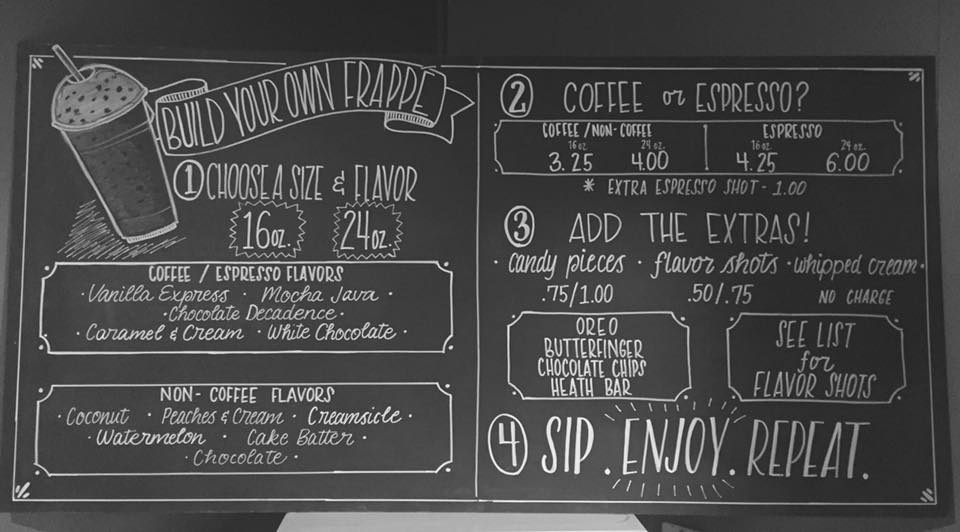 BUILD YOUR OWN FRAPPE
1 CHOOSE A SIZE & FLAVOR
16 oz. 24 oz.
COFFEE / ESPRESSO FLAVORS
· Vanilla Express · Mocha Java ·
· Chocolate Decadence ·
· Caramel & Cream · White Chocolate ·
NON-COFFEE FLAVORS
· Coconut · Peaches & Cream · Creamsicle ·
· Watermelon · Cake Batter ·
· Chocolate ·
2 COFFEE or ESPRESSO?
COFFEE / NON-COFFEE ESPRESSO
16 oz 24 oz. 16 oz 24 oz.
3.25 4.00 4.25 6.00
* EXTRA ESPRESSO SHOT - 1.00
3 ADD THE EXTRAS!
· candy pieces · flavor shots · whipped cream ·
.75/1.00 .50/.75 NO CHARGE
OREO
BUTTERFINGER
CHOCOLATE CHIPS
HEATH BAR
SEE LIST
for
FLAVOR SHOTS
4 SIP. ENJOY. REPEAT.